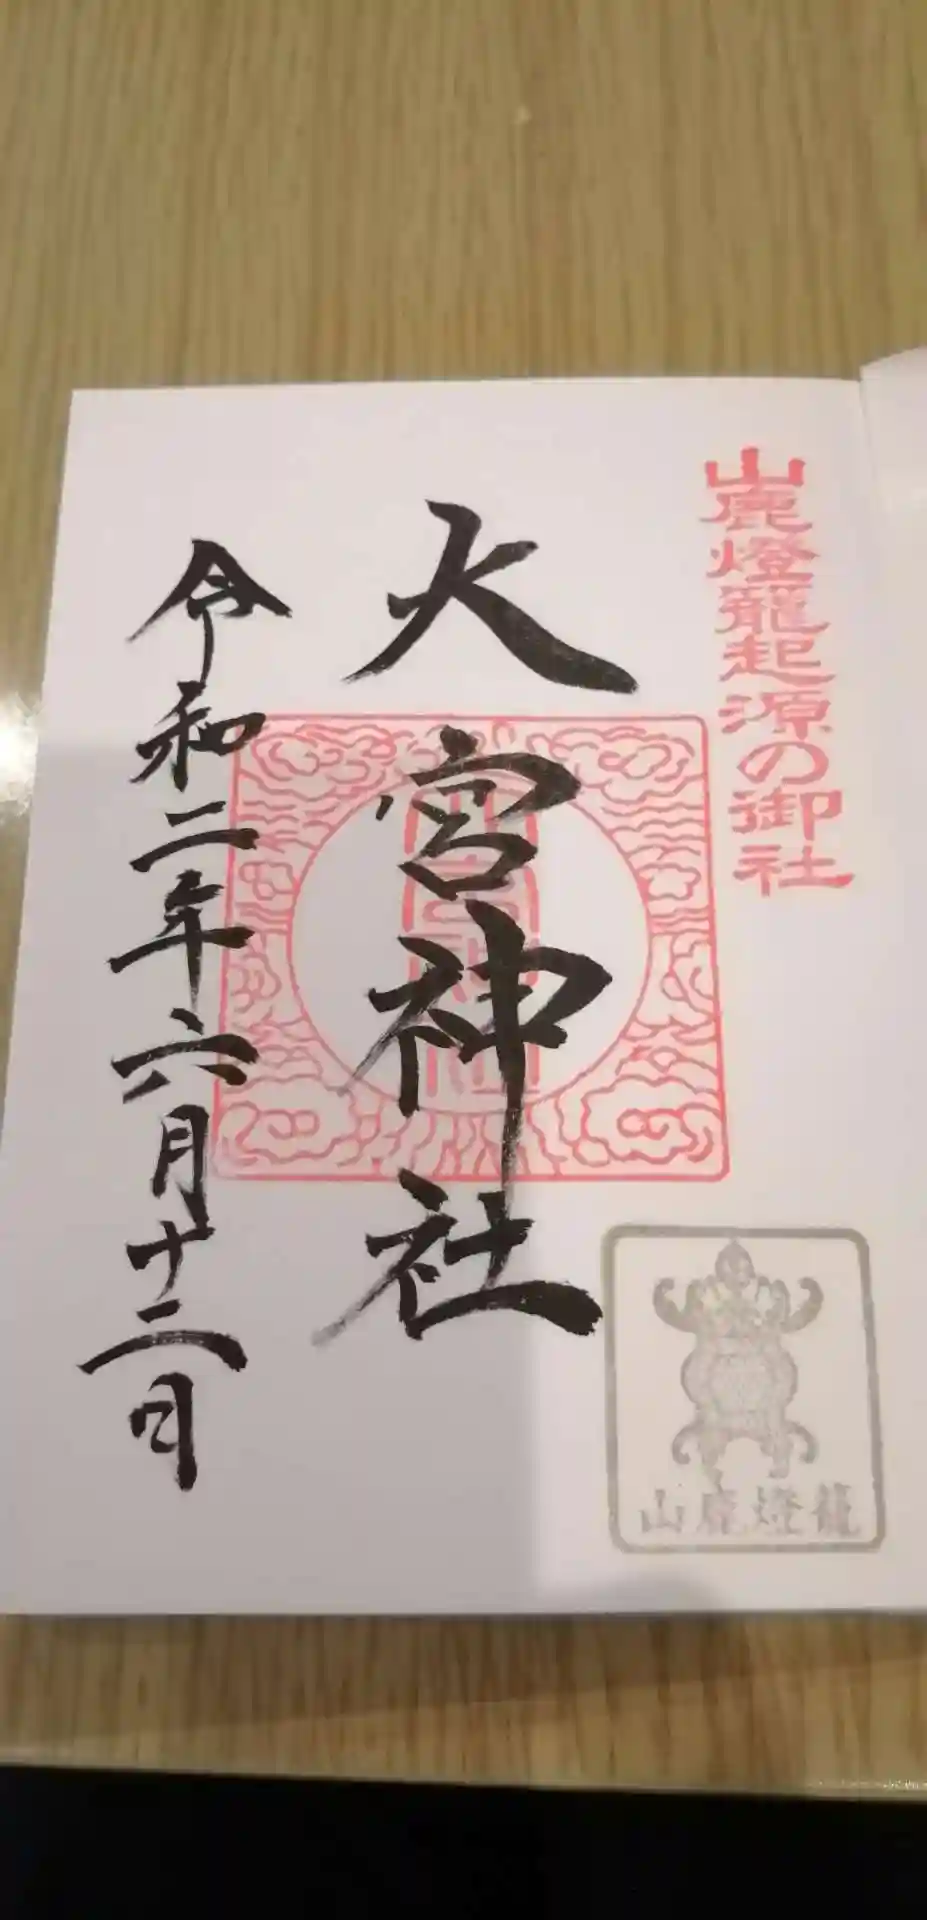 山鹿燈籠起源の御社
大宮神社
令和二年六月十二日
山鹿燈籠